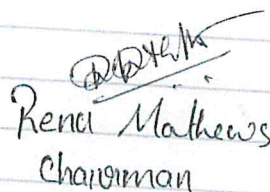 Rena Mathews
Chairman